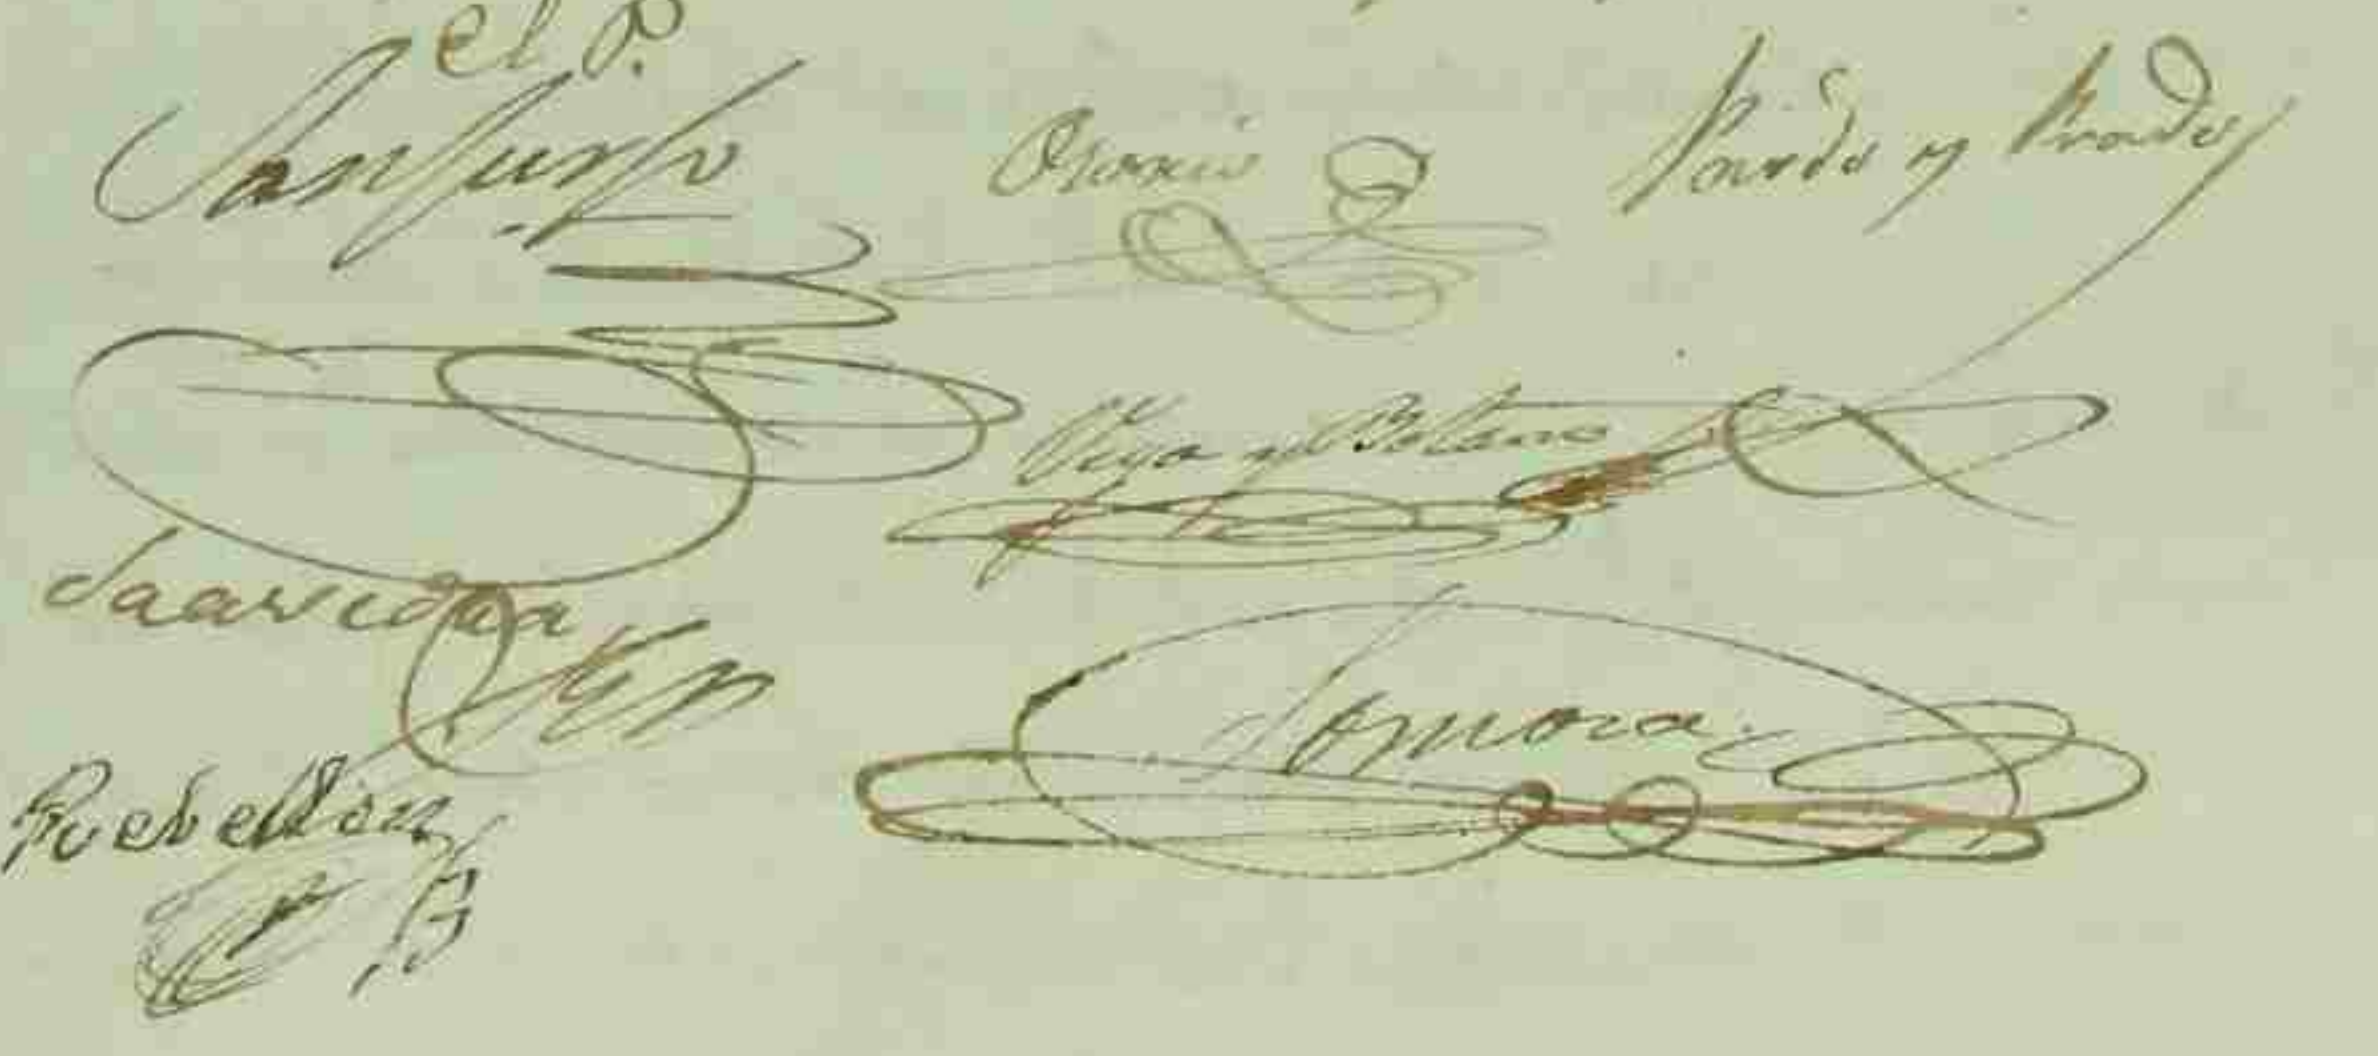 El P.
Sanjurjo
Osorio
Pardo y Prado
Vega y Bolaño
Saavedra
Somoza
Rebellón